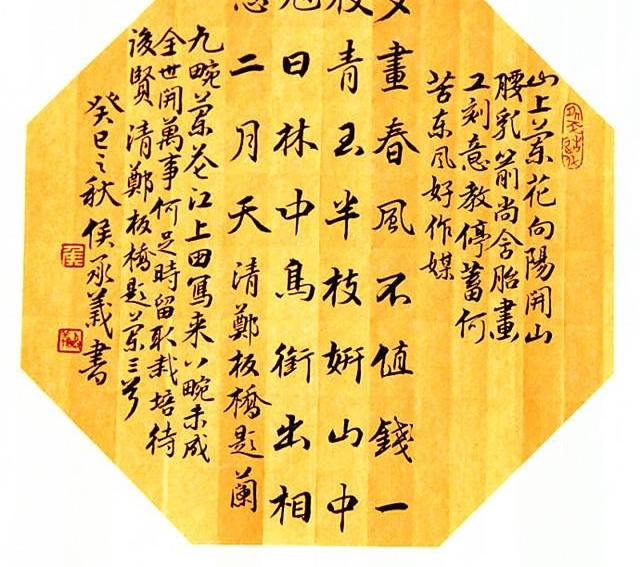 山上蘭花向陽開山
腰乳箭尚含胎畫
工刻意教停蓄何
苦東風好作媒
畫春風不值錢一
枝青玉半枝妍山中
日林中鳥銜出相
思二月天清鄭板橋題蘭
九畹蘭花江上田寫來八畹未成
全世間萬事何足時留取栽培待
後賢清鄭板橋題蘭三首
癸巳之秋侯承義書